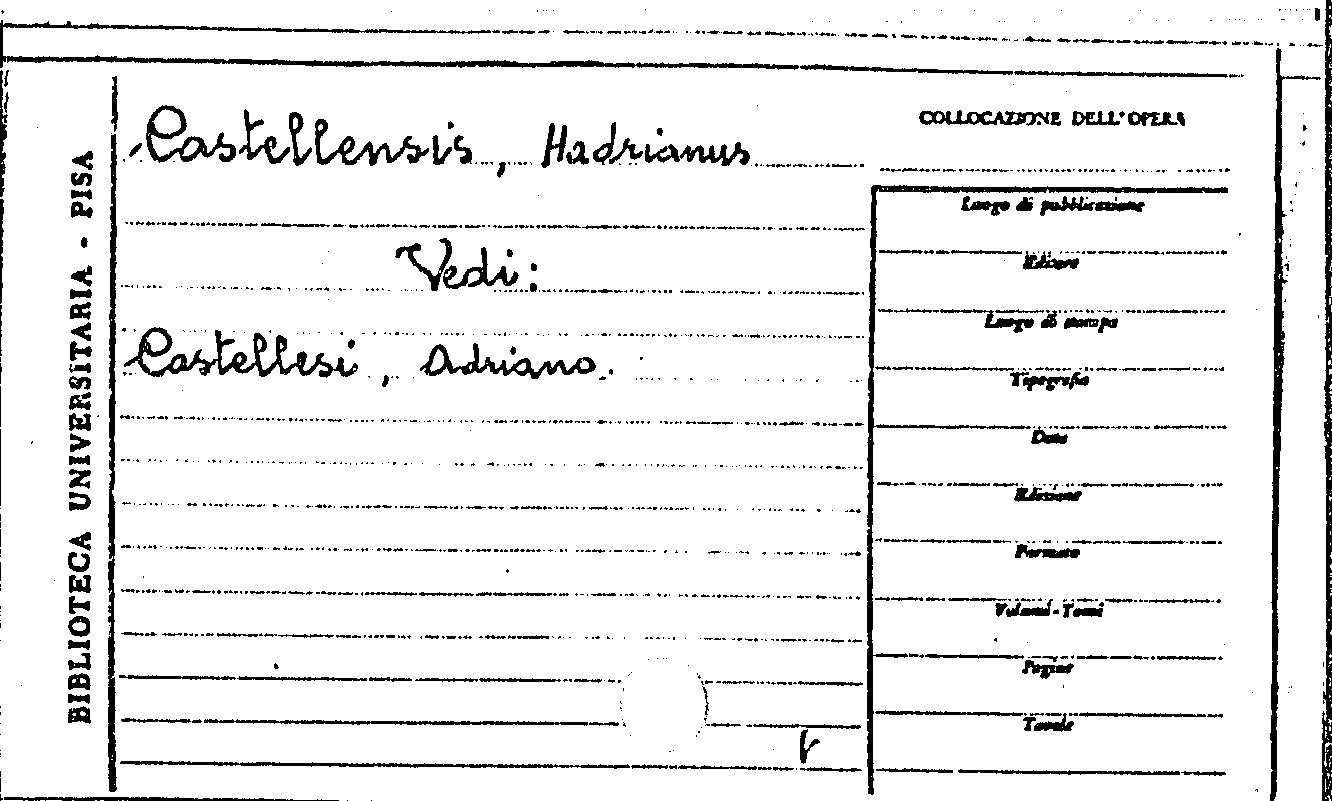 BIBLIOTECA UNIVERSITARIA - PISA
Castellensis, Hadrianus
Vedi:
Castellesi, Adriano.
COLLOCAZIONE DELL'OPERA
Luogo di pubblicazione
Editore
Luogo di stampa
Tipografia
Data
Edizione
Formato
Volumi-Tomi
Pagine
Tavole